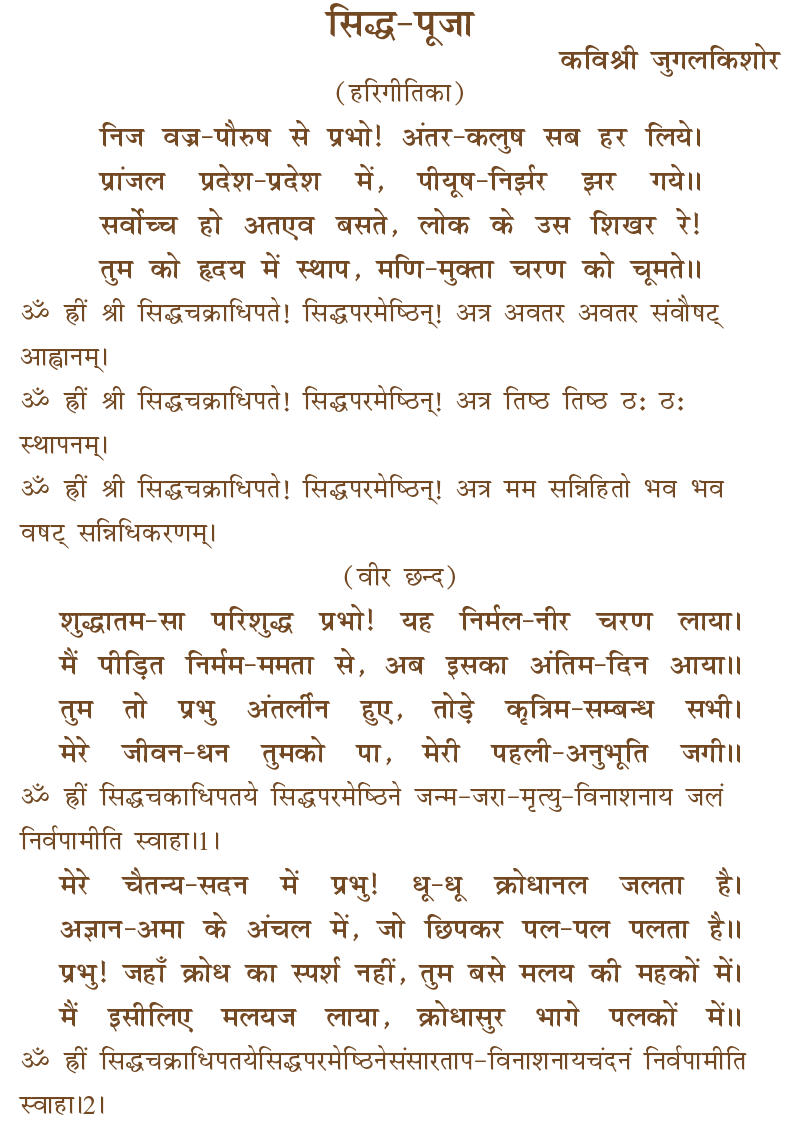 सिद्ध-पूजा
कविश्री जुगलकिशोर
(हरिगीतिका)
निज वज्र-पौरुष से प्रभो! अंतर-कलुष सब हर लिये।
प्रांजल प्रदेश-प्रदेश में, पीयूष-निर्झर झर गये॥
सर्वोच्च हो अतएव बसते, लोक के उस शिखर रे!
तुम को हृदय में स्थाप, मणि-मुक्ता चरण को चूमते॥
ॐ ह्रीं श्री सिद्धचक्राधिपते! सिद्धपरमेष्ठिन्! अत्र अवतर अवतर संवौषट्
आह्वानम्।
ॐ ह्रीं श्री सिद्धचक्राधिपते! सिद्धपरमेष्ठिन्! अत्र तिष्ठ तिष्ठ ठ: ठ:
स्थापनम्।
ॐ ह्रीं श्री सिद्धचक्राधिपते! सिद्धपरमेष्ठिन्! अत्र मम सन्निहितो भव भव
वषट् सन्निधिकरणम्।
(वीर छन्द)
शुद्धातम-सा परिशुद्ध प्रभो! यह निर्मल-नीर चरण लाया।
मैं पीड़ित निर्मम-ममता से, अब इसका अंतिम-दिन आया॥
तुम तो प्रभु अंतर्लीन हुए, तोड़े कृत्रिम-सम्बन्ध सभी।
मेरे जीवन-धन तुमको पा, मेरी पहली-अनुभूति जगी॥
ॐ ह्रीं सिद्धचकाधिपतये सिद्धपरमेष्ठिने जन्म-जरा-मृत्यु-विनाशनाय जलं
निर्वपामीति स्वाहा।1।
मेरे चैतन्य-सदन में प्रभु! धू-धू क्रोधानल जलता है।
अज्ञान-अमा के अंचल में, जो छिपकर पल-पल पलता है॥
प्रभु! जहाँ क्रोध का स्पर्श नहीं, तुम बसे मलय की महकों में।
मैं इसीलिए मलयज लाया, क्रोधासुर भागे पलकों में॥
ॐ ह्रीं सिद्धचक्राधिपतयेसिद्धपरमेष्ठिनेसंसारताप-विनाशनायचंदनं निर्वपामीति
स्वाहा।2।